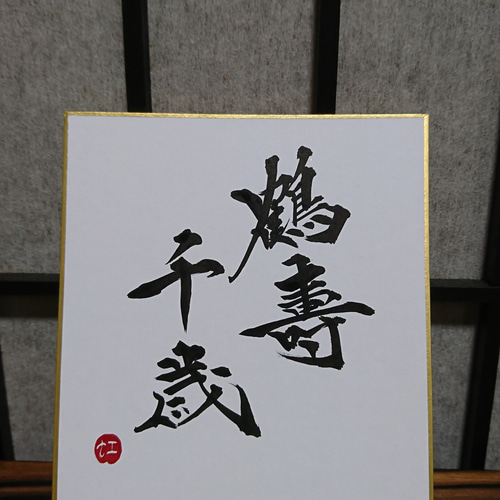 鶴壽
千歳
虹